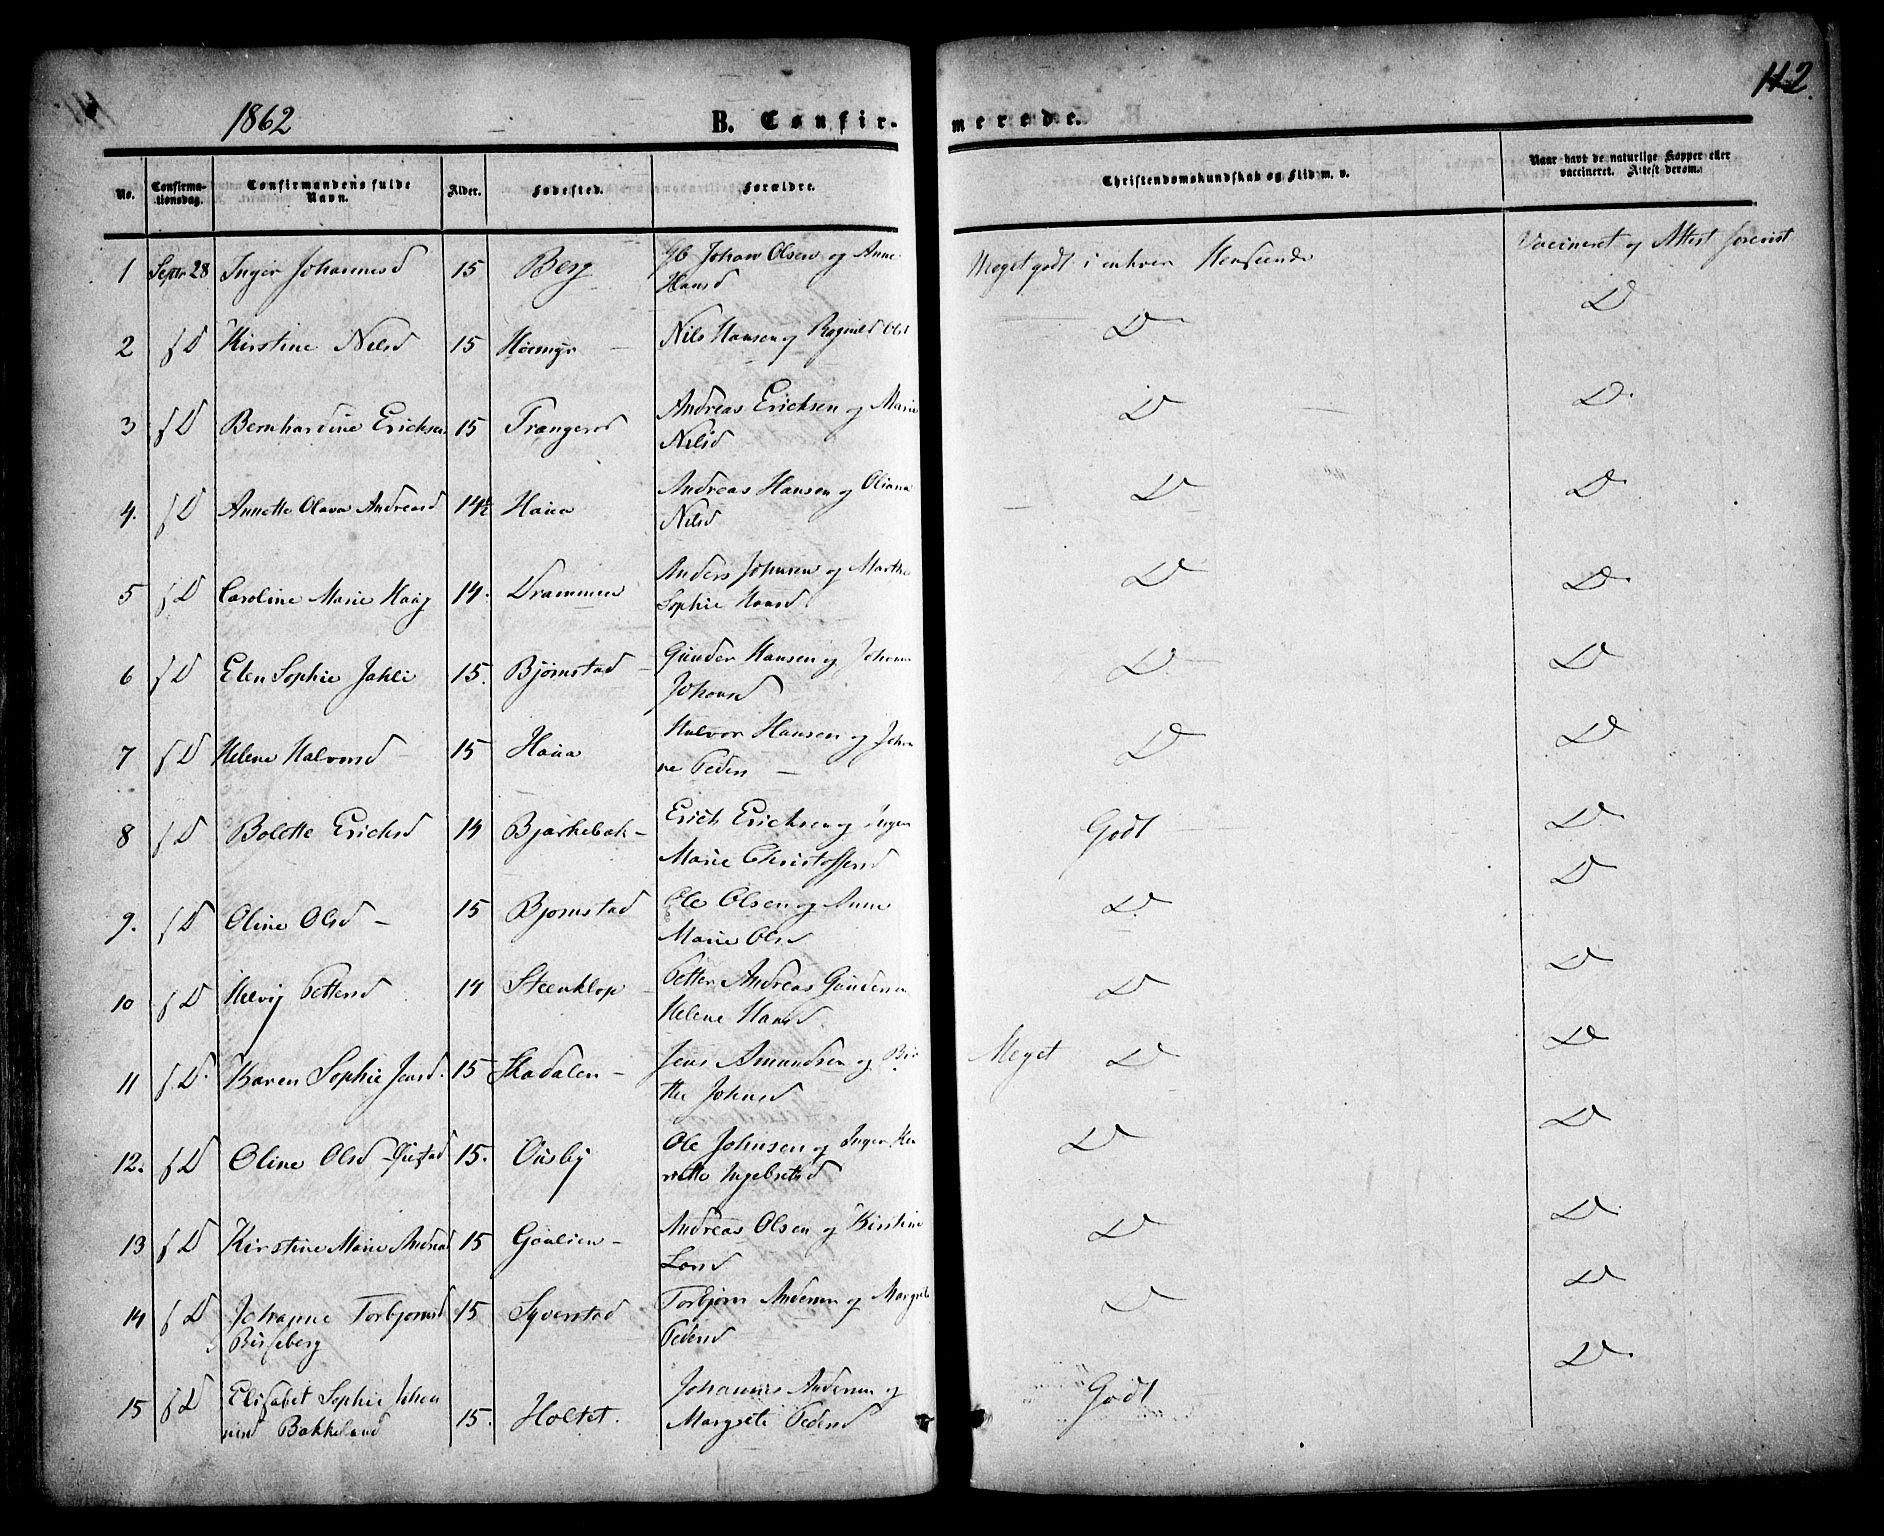 1862 B. Confir- merede. 112.
No. Confirma-tionsdag. Confirmandens fulde Navn. Alder. Fødested. Forældre. Christendomskundskab og Flid m. v. Naar havt de naturlige Kopper eller vaccineret. Attest derom.
1 Septr 28 Inger Johannesd 15 Berg Johan Olsen og Anne Meget godt i enhver Henseende Vaccineret og Attest forevist
Hansd D
2 D Kirstine Nilsd 15 Nils Hansen og Ragnild Olsd D
3 D Bernhardine Ericksen 15 Trangerod Andreas Ericksen og Marie D D
Nilsd
4. D Annette Olava Andreasd 14½ Haua Andreas Hansen og Oliana D D
Nilsd
5 D Caroline Marie Haag 14. Drammen Anders Johnsen og Marthe D D
Sophie Hansd
6 D Elen Sophie Jahli 15. Bjørnstad – Gunder Hansen og D D
Johansd
7 D Helene Halvorsd – 15 Haua Halvor Hansen og Johan D D
ne Peders –
8 D Bolette Ericksd 14 Bjørkebak – Erich Ericksen og Inger Godt D
Marie Christoffersd
9. D Oline Olsd – 15 Bjørnstad Ole Olsen og Anne D D
Marie Olsd
10 D Helvig Pettersd 14 Steenklop – Petter Andreas D D
Helene Hansd
11 D Karen Sophie Jensd. 15 Skadalen – Jens Amundsen og Bir Meget D D
the Johnsd
12. D Oline Olsd 15. Ousby Ole Johnsen og Inger Hen D D
riette Ingebretsd
13 D Kirstine Marie Andread 15 Gaulien – Andreas Olsen og Kirstine D D
Larsd
14 D Johanne Torbjørnsd 15 Syverstad Torbjørn Andersen og Margrete D D
Pedersd
15 D Elisabet Sophie Johan 15. Holtet. Johannes Andersen og Godt D
nesd Bakkeland Margrete Pedersd